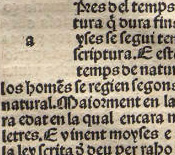 Pres del temps
tura q̃ dura fins
a
yses se segui tem
scriptura. E esta
temps de natur
los homẽs se regien segons
natural. Maiozment en la
ra edat en la qual encara n
letres. E vinent moyses e
la ley scrita q̃ deu per raho